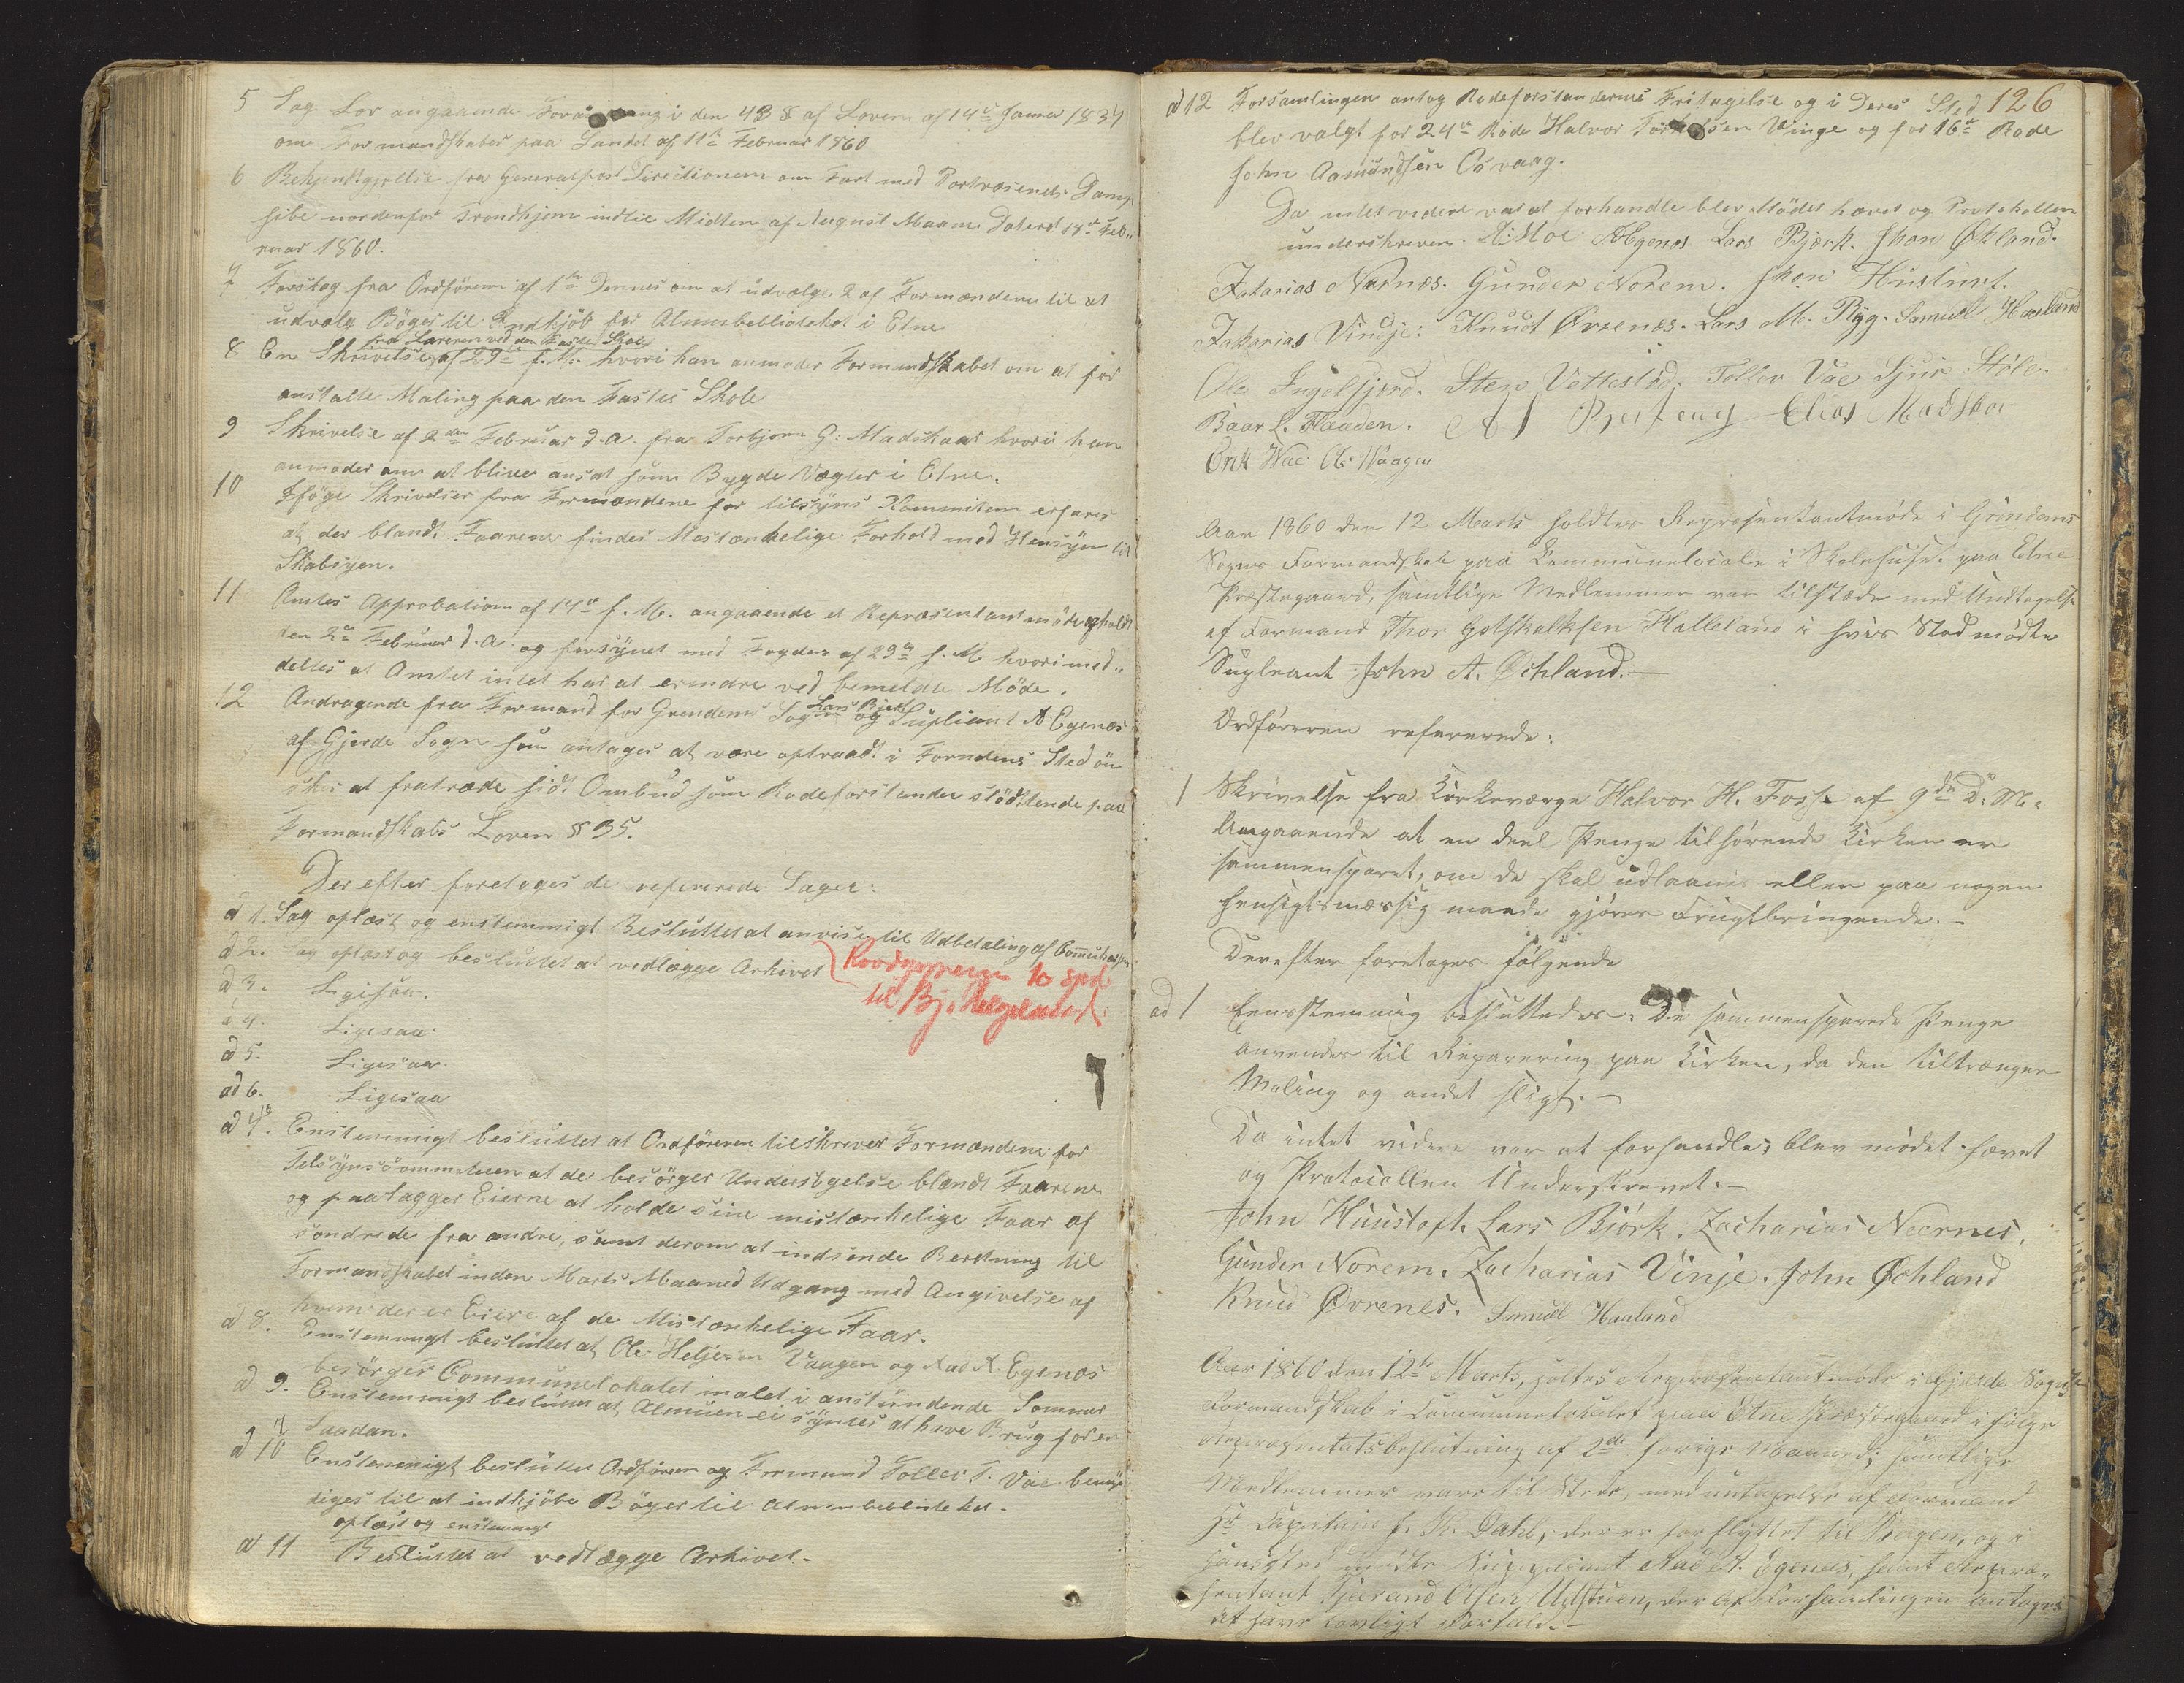 5 Sag Lov angaaende Forandring i den 43 § af Loven af 14de Januar 1837
om Formandskaber paa Landet af 11te Februar 1860
6 Bekjendtgjørelse fra Generalpost Directionen om Fart med Postvæsenets Damp
sibe nordenfor Trondhjem indtil Midten af August Maane. Dateret 14de Feb„
ruar 1860.
7 Forslag fra Ordføreren af 1ste Dennes om at udvælge 2 af Formændene til at
udvælge Bøger til Indkjøb for Almuebibliotheket i Etne
fra Læreren ved den Faste Skole
8 En Skrivelse af 29de f. M. hvori han anmoder Formandskabet om at for
anstalte Maling paa den Fastes Skole
9 Skrivelse af 2den Februar d. a. fra Torbjørn G. Madskaar hvori han
anmoder om at blive ansat som Bygde Vægter i Etne.
10 Ifølge Skrivelser fra Formændene for tilsyns Kommiteen erfares
at der blandt Faarene findes Mistænkelige Forhold med Hensyn til
Skabsyen.
11 Amtes Approbation af 14de f. M. angaaende et Repræsentantmøde afholdt
den 2den Februar d. a. og forsynet med Fogdens af 29de f. M. hvori med„
deeltes at Amtet intet har at erindre ved bemeldte Møde.
Lars Bjørk
12 Andragende fra Formand for Grendens Sogn og Supliant A. Egenæs
af Gjerde Sogn som antages at være optraadt i Formdens Sted øn
sker at fratræde sidt Ombud som Rodeforstander støttende paa
Formandskabs Loven § 35.
Derefter foretoges de refererede Sager:
ad 1. Sag oplæst og enstemmigt Besluttet at anvise til Udbetaling af Communekassen
ad 2. Sag oplæst og besluttet at vedlægge Arkivet
10 Spd.
til Bj.
ad 3. Ligesaa.
ad 4. Ligesaa
ad 5. Ligesaa.
ad 6. Ligesaa
ad 7. 10 Enstemmigt besluttet at Ordføreren tilskriver Formændene for
tilsynscommiteen at de besørger Undersøgelse blandt Faarene
og paalægger Eierne at holde sine mistænkelige Faar af
sondrede fra andre, samt derom at indsende Beretning til
Formandskabet inden Marts Maaned Udgang med Angivelse af
hvem der er Eiere af de Mistænkelige Faar.
ad 8. Enstemmigt besluttet at Ole Heljesen Vaagen og Aad A. Egenæs
besørger Communelokalet malet i anstundende Sommer
ad 9. Enstemmigt besluttet at Almuen ei syntes at have Brug for en
Saadan.
7
ad 10 Enstemmigt besluttet Ordføreren og Formand Tollev T. Vae bemyn
diges til at indkjøbe Bøger til Almuebibliotheket.
oplæst og enstemmigt
ad 11 Besluttet at vedlægge Arkivet.
126
ad 12 Forsamlingen antog Rodeforstandernes Fritagelse og i Deres Sted
blev valgt for 24de Rode Halvor Torkelsen Vinge og for 16de Rode
John Aamundsen Osvaag.
Da intet videre var at forhandle blev Mødet hævet og Protokollen
underskreven. N: Moe A Egenæs Lars Bjørk. Jhon Økland.
Zakarias Nærnæs. Gunder Norem. Jhon Hustuft.
Zakarias Vindje: Knudt Øvrenæs. Lars M. Ryg. Samuel Haaland
Ole Ingelfjord. Sten Vettestød. Tollev Vae Sjur Støle.
Baar L. Flaaden. Elias Madskar
Erik Wae. O. Vaagen
Aar 1860 den 12 Marts holdtes Representantmøde i Grindens
Sogns Formandskab paa Communelocale i Skolehuset paa Etne
Præstegaard, samtlige Medlemmer var tilstæde med Undtagelse
af Formand Thor Gotskalksen Halleland i hvis Sted mødte
Supleant John A. Øchland. —
Ordføreren refererede:
1 Skrivelse fra Kirkeværge Halvor H. Fosse af 9de d. M.
Angaaende at en deel Penge tilhørende Kirken er
sammensparet, om de skal udlaanes eller paa nogen
hensigtsmæssig maade gjøres Frugtbringende. —
Derefter foretoges følgende
ad 1 Eensstemmig besluttedes: De sammensparede Penge
anvendes til Reparering paa Kirken, da den tiltrænger
Maling og andet sligt. —
Da intet videre var at forhandle, blev mødet hævet
og Protocollen Underskrevet. —
John Huustoft. Lars Björk. Zacharias Neernes.
Gunder Norem. Zacharias Vinje. John Øchland
Knud Øvrenes. Samuel Haaland
Aar 1860 den 12te Marts, holtes Repræsentantmøde i Gjerde Sogns
Formandskab i Communelokalet paa Etne Præstegaard i følge
Repræsentatsbeslutning af 2de forige Maaned; samtlige
Medlemmer vare til Stede, med untagelse af Formand
Hr Capitain J. K. Dahl, der er forflyttet til Skogen, og i
hans sted mødte Suppleant Aad A. Egenæs, samt Repræ„
sentant Sjurand Olsen Udstuen, der af Forsamlingen antoges
at have lovligt Forfald. —